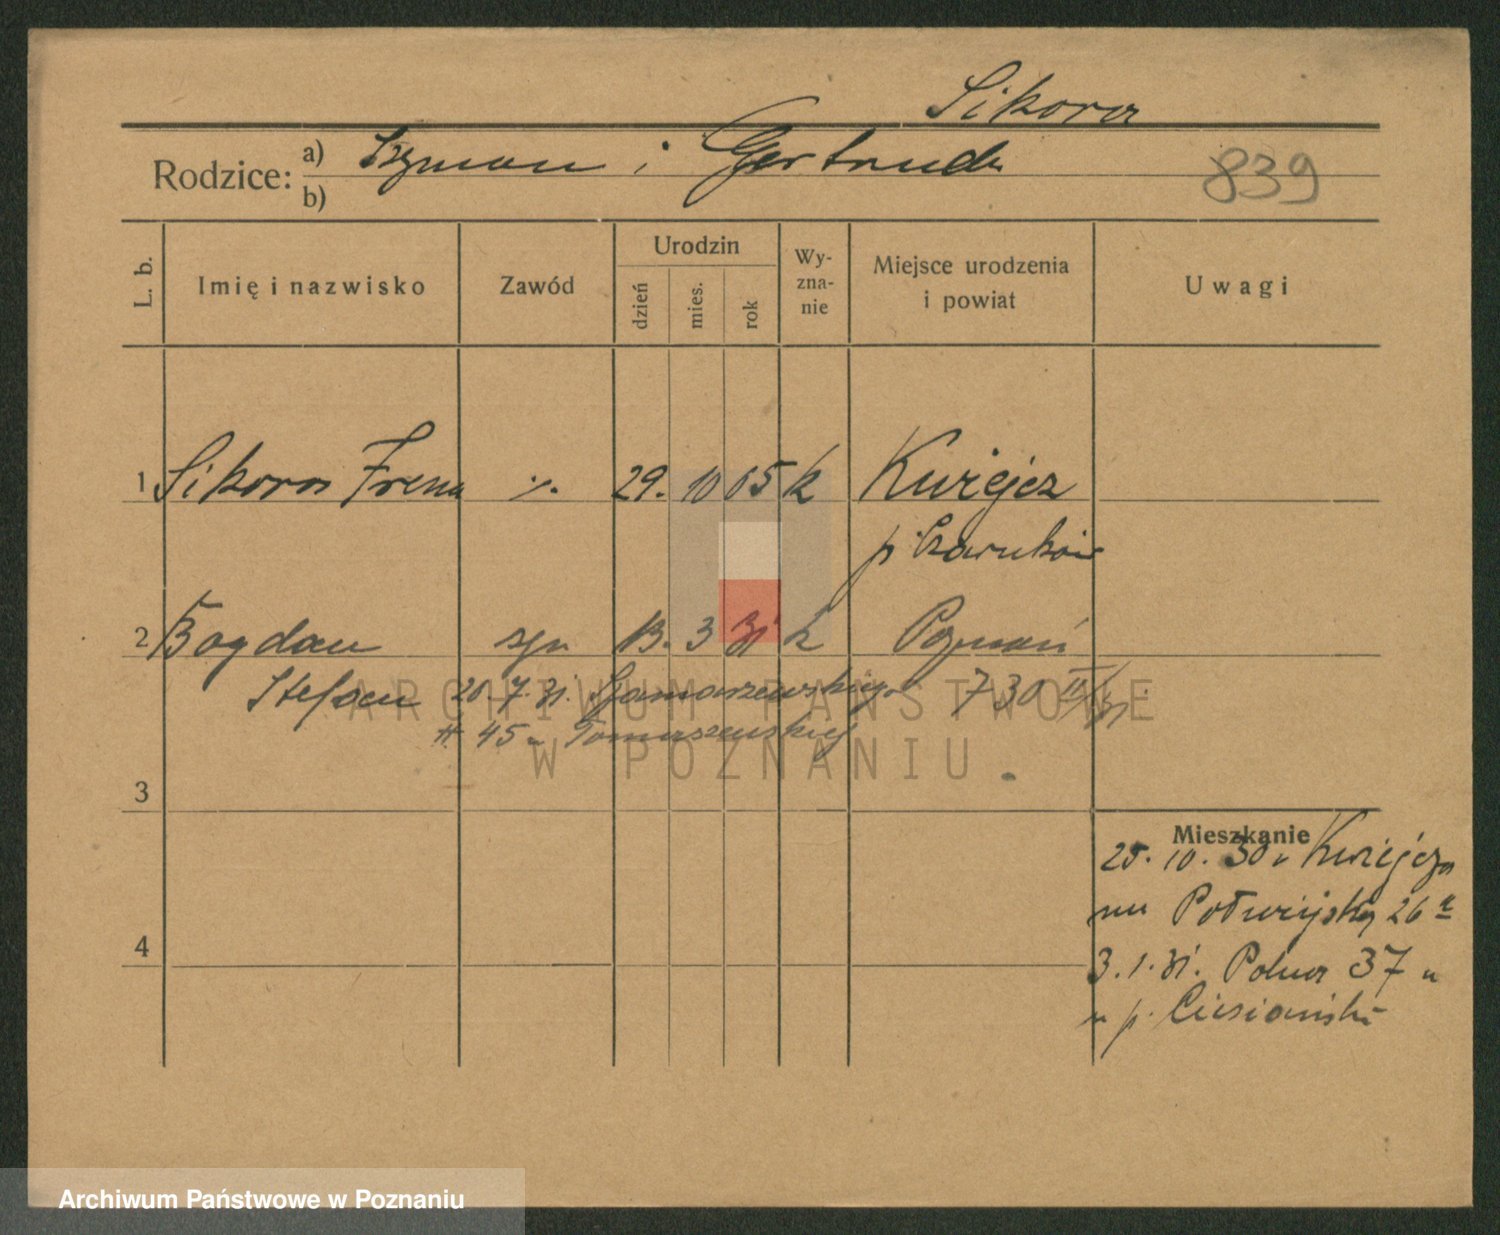 Sikora
Rodzice: a) Szyman i Gertruda
b)
839
L. b.
Imię i nazwisko
Zawód
Urodzin
dzień
mies.
rok
Wy-
zna-
nie
Miejsce urodzenia
i powiat
Uwagi
1 Sikora Irena ./. 29. 10 05 k
p Czarnków
2 Bogdan syn 13. 3 31 k Poznań
Stefan 20.7.31. Szamarzewskiego 730 II/31.
45 u Tomaszewskiej
3
Mieszkanie
25. 10. 30 z
26
4
3.1.31. Polna 37
u p.
ARCHIWUM PAŃSTWOWE
W POZNANIU
Archiwum Państwowe w Poznaniu